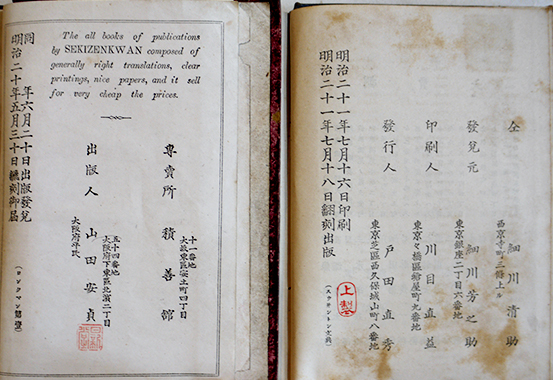 The all books of publications
by SEKIZENKWAN composed of
generally right translations, clear
printings, nice papers, and it sell
for very cheap the prices.
十一番地
大阪東區安土町四丁目
專賣所 積善舘
五十四番地
大阪府下東區北濱二丁目
大阪府平民
出版人 山田安貞
同 年六月二十日出版發兌
明治二十年五月三十日飜刻御届
西京寺町三條上ル
仝 細川清助
東京銀座二丁目六番地
發兌元 細川芳之助
印刷人 川目直益
東京芝區西久保城山町八番地
發行人 戸田直秀
明治二十一年七月十六日印刷
明治二十一年七月十八日飜刻出版
上製
(スウヰントン文典)